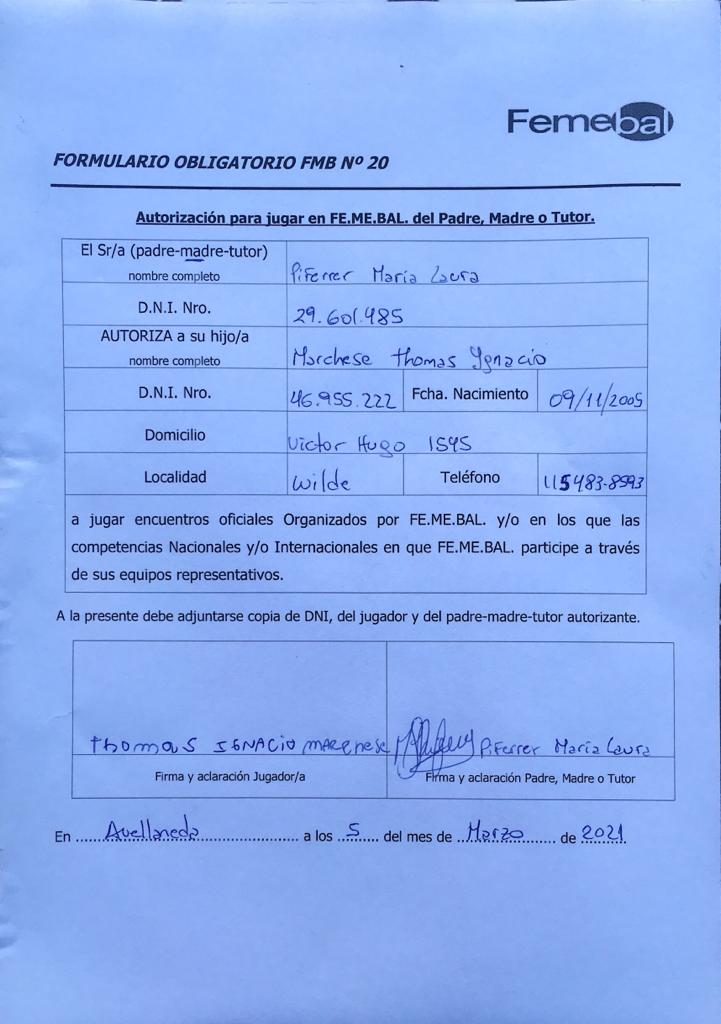 Femebal
FORMULARIO OBLIGATORIO FMB Nº 20
Autorización para jugar en FE.ME.BAL. del Padre, Madre o Tutor.
El Sr/a (padre-madre-tutor)
nombre completo
Piferrer Maria Laura
D.N.I. Nro.
29.601.485
AUTORIZA a su hijo/a
nombre completo
Marchese Thomas Ygnacio
D.N.I. Nro.
46.955.222
Fcha. Nacimiento
09/11/2005
Domicilio
Victor Hugo 1545
Localidad
Wilde
Teléfono
115483-8593
a jugar encuentros oficiales Organizados por FE.ME.BAL. y/o en los que las
competencias Nacionales y/o Internacionales en que FE.ME.BAL. participe a través
de sus equipos representativos.
A la presente debe adjuntarse copia de DNI, del jugador y del padre-madre-tutor autorizante.
Thomas IGNACIO MARCHESE
Piferrer Maria Laura
Firma y aclaración Jugador/a
Firma y aclaración Padre, Madre o Tutor
En Avellaneda a los 5 del mes de Marzo de 2021